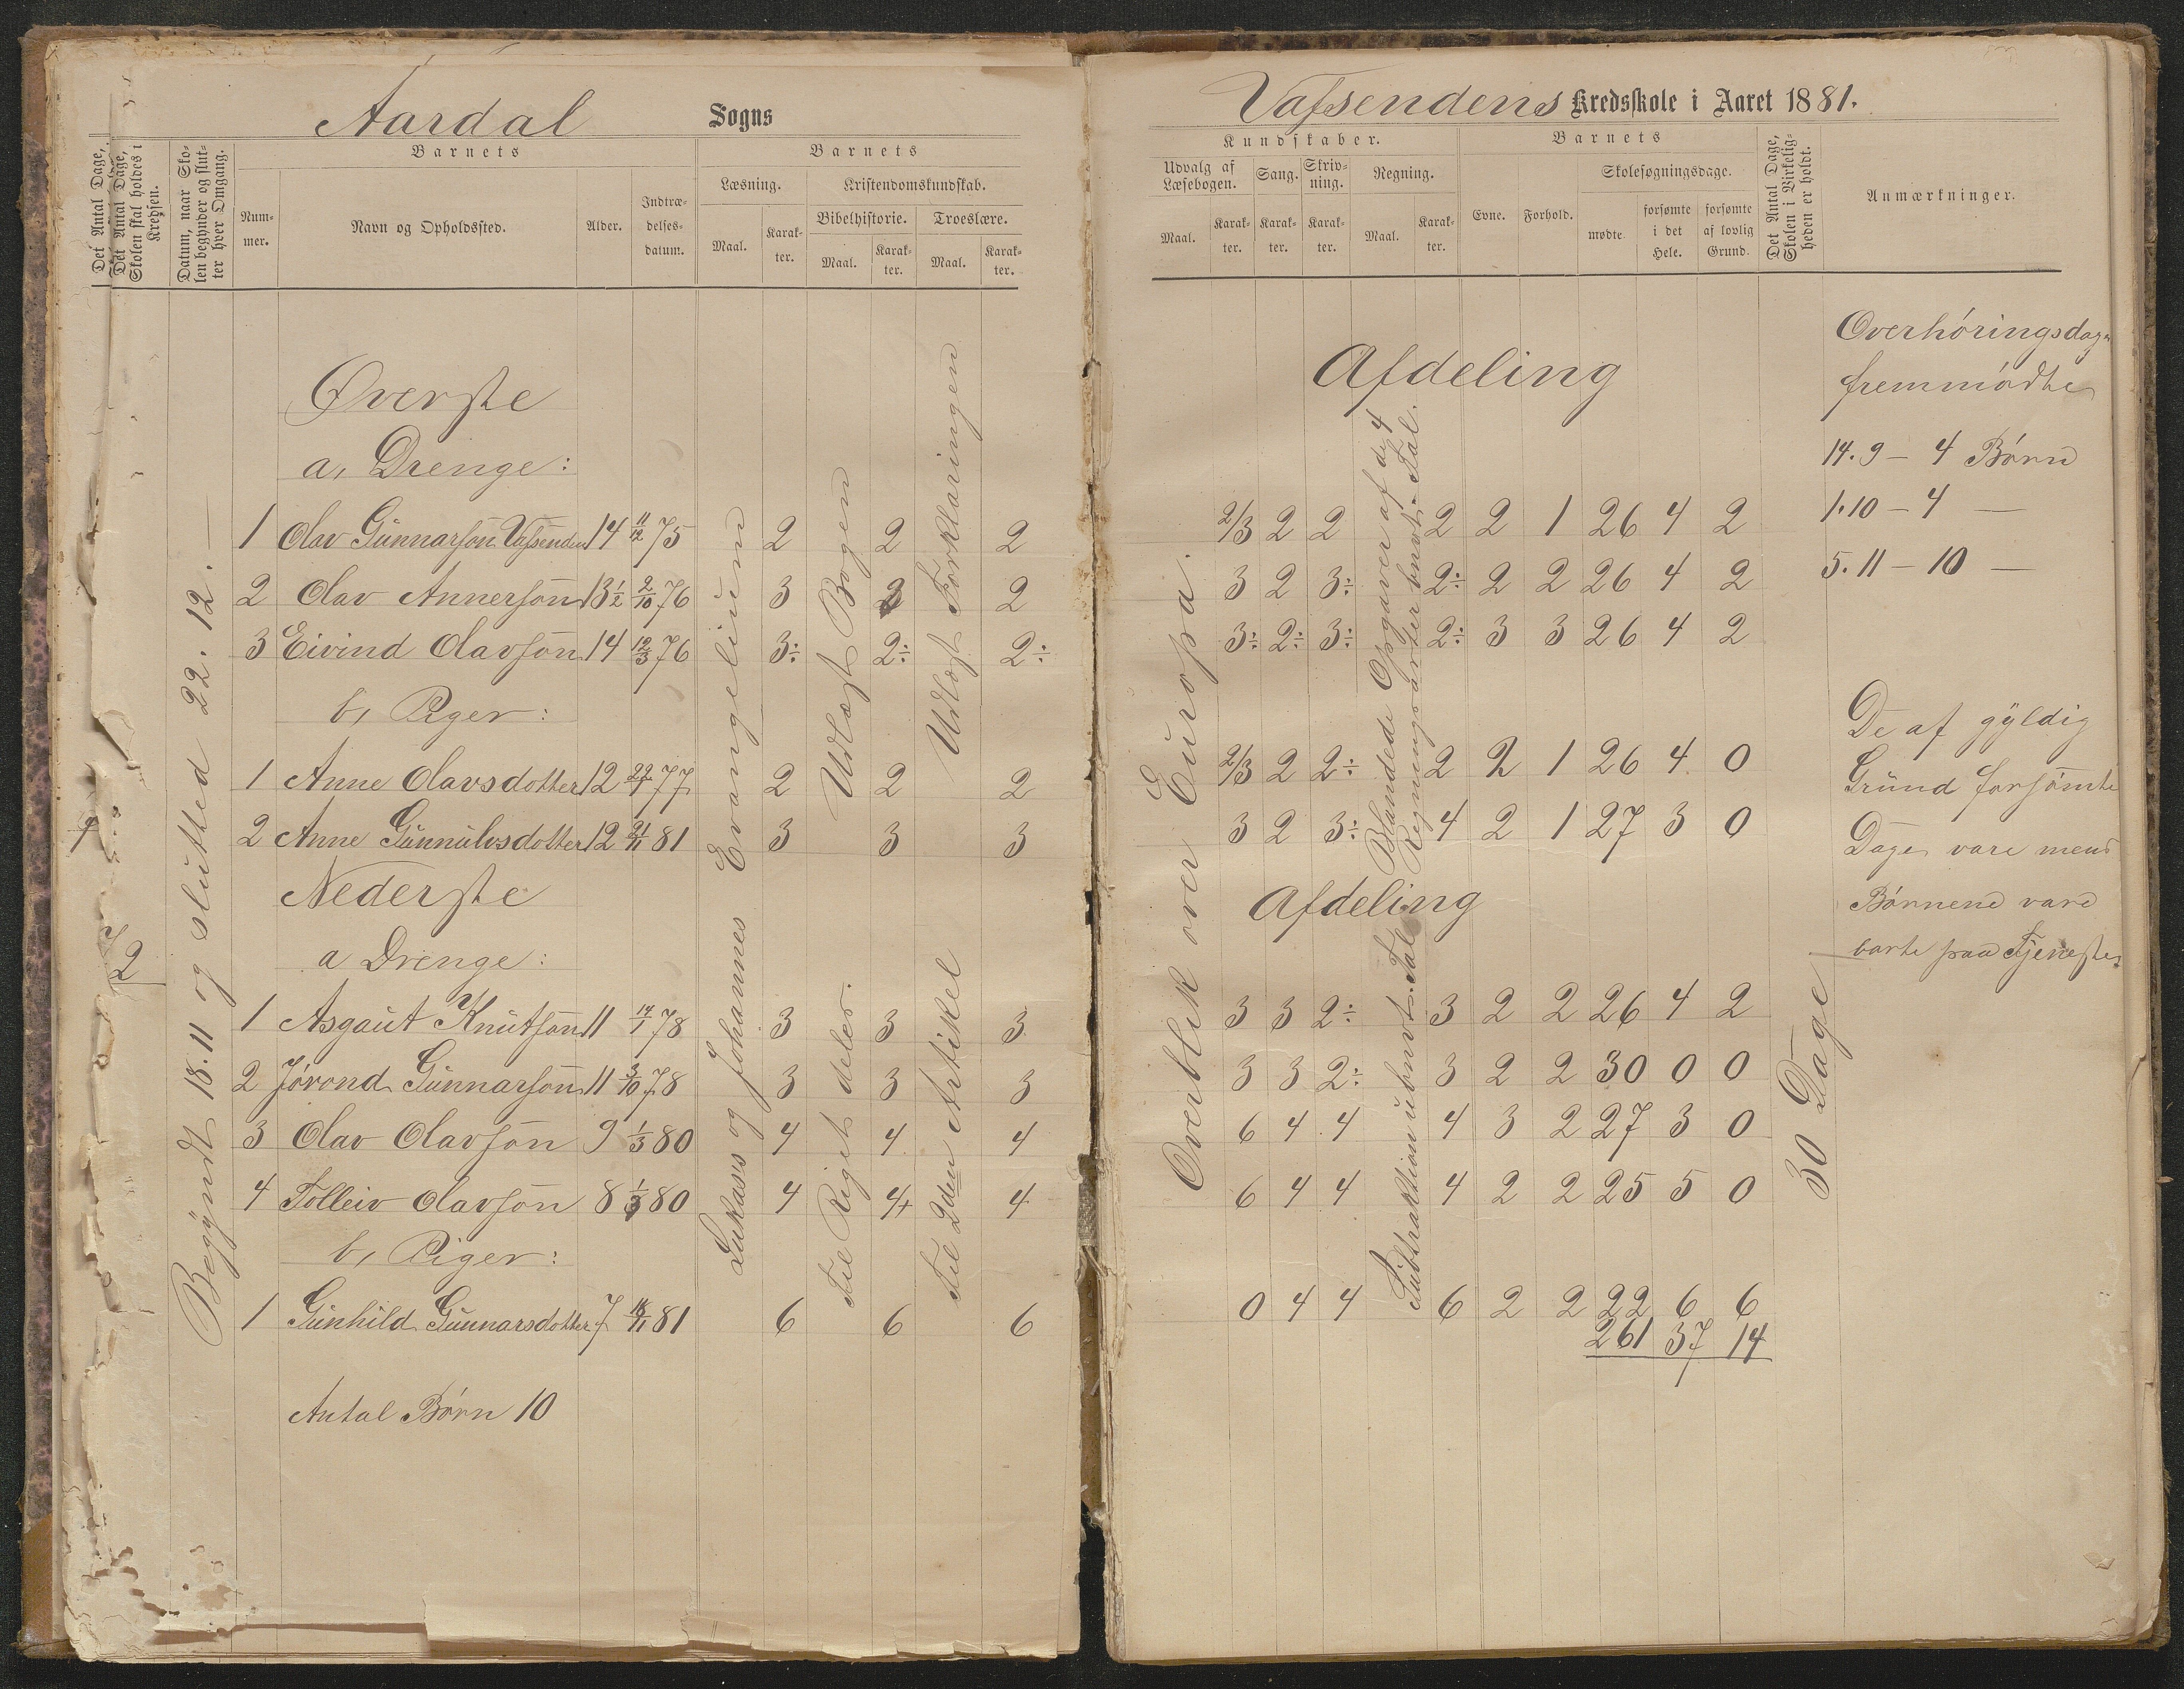 Aardal Sogns
Det Antal Dage,
Det Antal Dage, Skolen skal holdes i Kredsen.
Datum, naar Skolen begynder og slutter hver Omgang.
Barnets
Nummer.
Navn og Opholdssted.
Alder.
Indtrædelsesdatum.
Barnets
Læsning.
Kristendomskundskab.
Bibelhistorie.
Troeslære.
Maal.
Karakter.
Maal.
Karakter.
Maal.
Karakter.
Begÿndt 18.11 og slutted 22.12.—
7
72
Øverste
a, Drenge:
1 Olav Gunnarson Vassenden 14 11/12 75 2 2 2
2 Olav Annersøn 13½ 2/10 76 3 2 2
3 Eivind Olavsøn 14 12/3 76 3÷ 2÷ 2÷
b, Piger:
1 Anne Olavsdotter 12 22/1 77 2 2 2
2 Anne Gunnulvsdotter 12 21/11 81 3 3 3
Nederste
a Drenge:
1 Asgaut Knutsøn 11 14/1 78 3 3 3
2 Jørond Gunnarsøn 11 3/10 78 3 3 3
3 Olav Olavsøn 9 1/3 80 4 4 4
4 Tolleiv Olavsøn 8 1/3 80 4 4+ 4
b, Piger:
1 Gunhild Gunnarsdotter 7 18/11 81 6 6 6
Antal Børn 10
Lukas's og Johannes Evangelium
Udlæst Bogen
Til Riget deler.
Udlæst Forklaringen
Til 2den Artikel
Vassendens Kredsskole i Aaret 1881.
Kundskaber.
Udvalg af Læsebogen.
Sang.
Skrivning.
Regning.
Maal.
Karakter.
Karakter.
Karakter.
Maal.
Karakter.
Barnets
Evne.
Forhold.
Skolesøgningsdage.
mødte.
forsømte i det Hele.
forsømte af lovlig Grund.
Det Antal Dage, Skolen i Virkeligheden er holdt.
Anmærkninger.
Afdeling
2/3 2 2 2 2 1 26 4 2
3 2 3÷ 2÷ 2 2 26 4 2
3÷ 2÷ 3÷ 2÷ 3 3 26 4 2
2/3 2 2÷ 2 2 1 26 4 0
3 2 3÷ 4 2 1 27 3 0
Afdeling
3 3 2÷ 3 2 2 26 4 2
3 3 2÷ 3 2 2 30 0 0
6 4 4 4 3 2 27 3 0
6 4 4 4 2 2 25 5 0
0 4 4 6 2 2 22 6 6
261 37 14
Overblik over Europa.
Blandede Opgaver af d. 4
Regningsarter benvt. Tal.
Subtraktion ubnvt. Tal
30 Dage
Overhøringsdage
fremmødte
14.9 – 4 Børn
1.10 – 4 —
5.11 – 10 —
De af gÿldig
Grund forsømte
Dage vare mens
Børnene vare
borte paa Tjeneste.